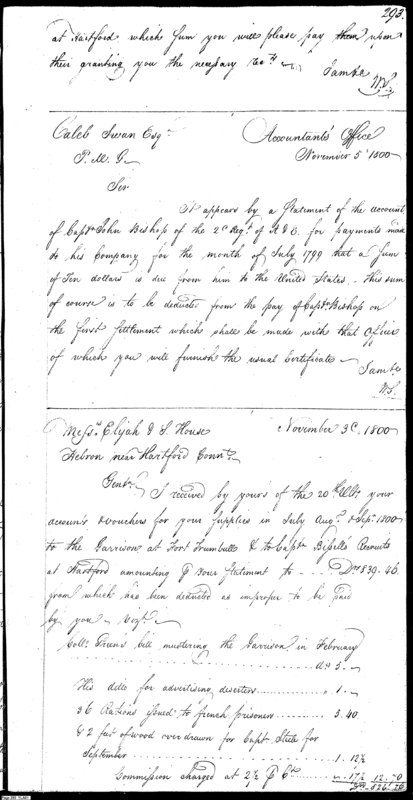 293.
at Hartford which sum you will please pay them upon
their granting you the necessary
I am &c
W.S.
Caleb Swan Esqr.
Accountants Office
P. M. G.
November 5th 1800
Sir
It appears by a Statement of the account
of Capt. John Bishop of the 2d Regt. of A & E. for payments made
to his Company for the month of July 1799 that a Sum
of Ten dollars is due from him to the United States. This sum
of course is to be deducted from the pay of Capt. Bishop on
the first Settlement which shall be made with that Officer
of which you will furnish the usual Certificate
I am &c
W.S.
Messrs. Elijah & S. House
November 3d. 1800
Hebron near Hartford Connt.
Gentn.
I received by yours of the 20th Ulto. your
accounts & vouchers for your supplies in July Augt. & Sepr. 1800
to the Garrison at Fort Trumbull & to Captn. Bissell's Recruits
at Hartford amounting P Your Statement to Drs 839.46
from which has been deducted as improper to be paid
by you Vizt.
Green's bill mustering the Garrison in February
ds 5. -
His ditto for advertising deserters 1. -
36 Rations issued to french prisoners 5.40
& 2 feet of wood overdrawn for Capt. Steele for
September 1.12½
Commission charged at 2½ P Ct. 17½ 12.70
Drs. 826.76